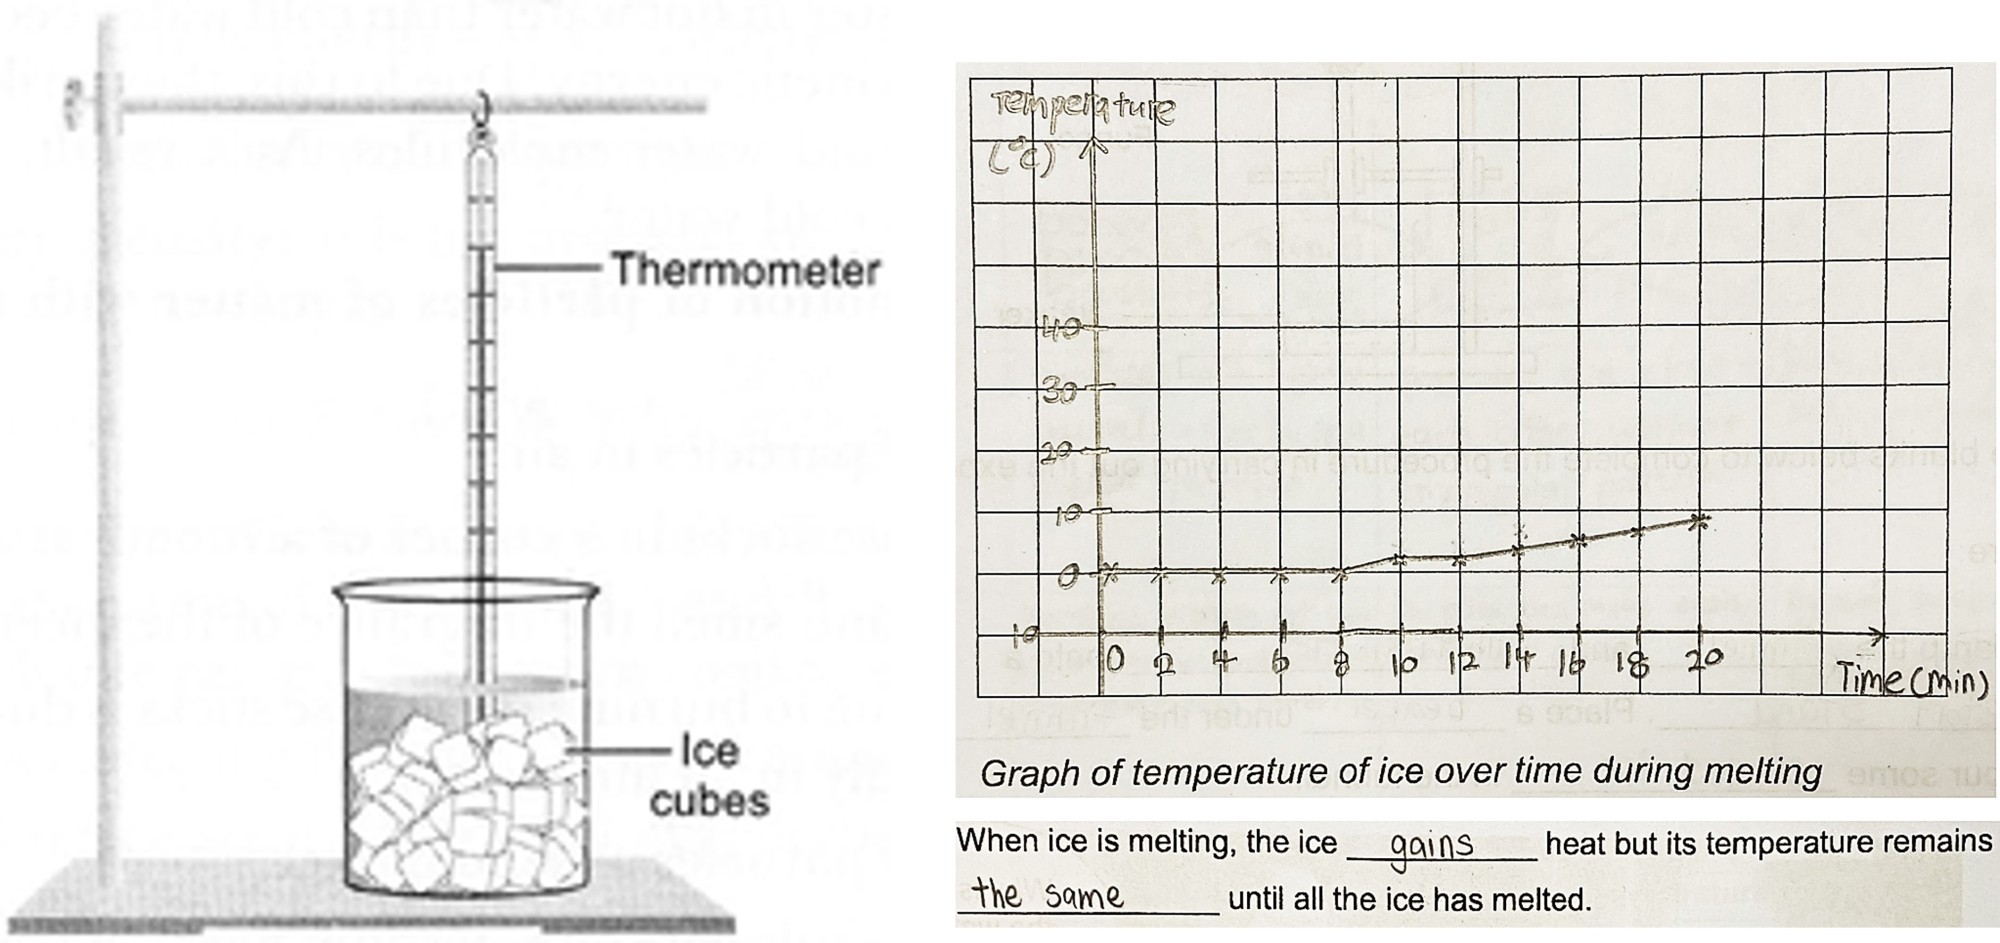 Thermometer
Ice
cubes
Temperature
(°C)
40
30
20
10
0
10
0 2 4 6 8 10 12 14 16 18 20
Time (min)
Graph of temperature of ice over time during melting
When ice is melting, the ice gains heat but its temperature remains
the same until all the ice has melted.